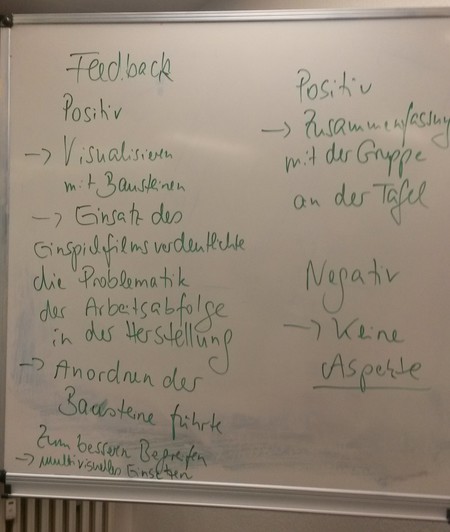 Feedback
Positiv
-> Visualisieren
mit Bausteinen
-> Einsatz des
Einspielfilms verdeutlichte
die Problematik
der Arbeitsabfolge
in der Herstellung
-> Anordnen der
Bausteine führte
zum bessern Begreifen
-> multivisuelles Einsetzen
Positiv
-> Zusammenfassung
mit der Gruppe
an der Tafel
Negativ
-> Keine
Aspekte